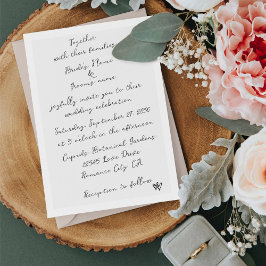 Together
with their families
Bride's Name
&
Grooms name
joyfully invite you to their
wedding celebration
Saturday, September 27, 2050
at 3 o'clock in the afternoon
Cupids Botanical Gardens
12345 Love Drive
Romance City, CA
Reception to follow